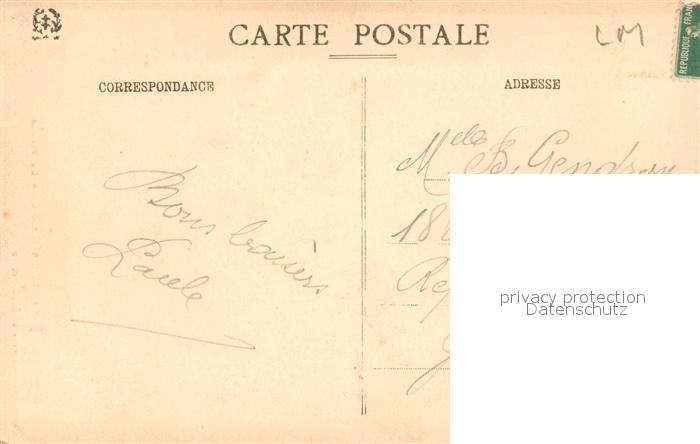 CARTE POSTALE
LM
REPUBLIQUE FRAN
CORRESPONDANCE
ADRESSE
Bons baisers
Paule
Melle B. Gendron
18
Re
privacy protection
Datenschutz